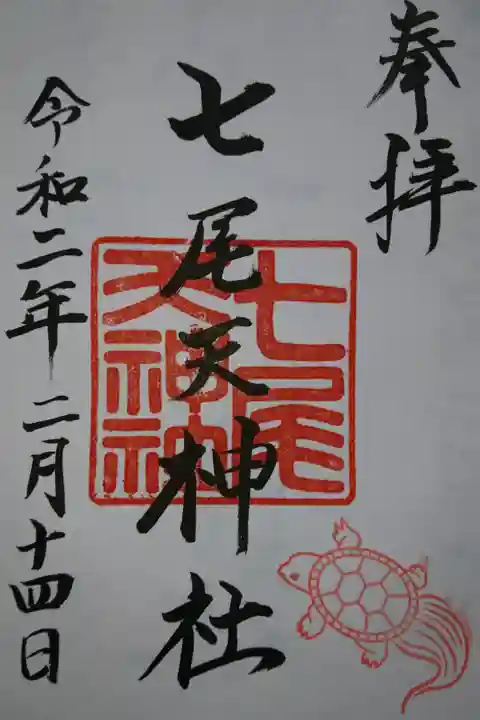 奉拝
七尾天神社
七尾
天神社
令和二年二月十四日